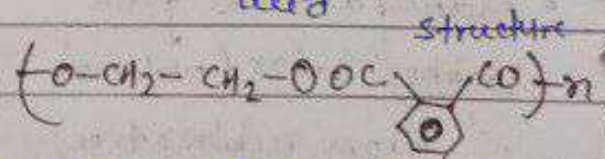 Structure
(O-CH2-CH2-OOC CO)n